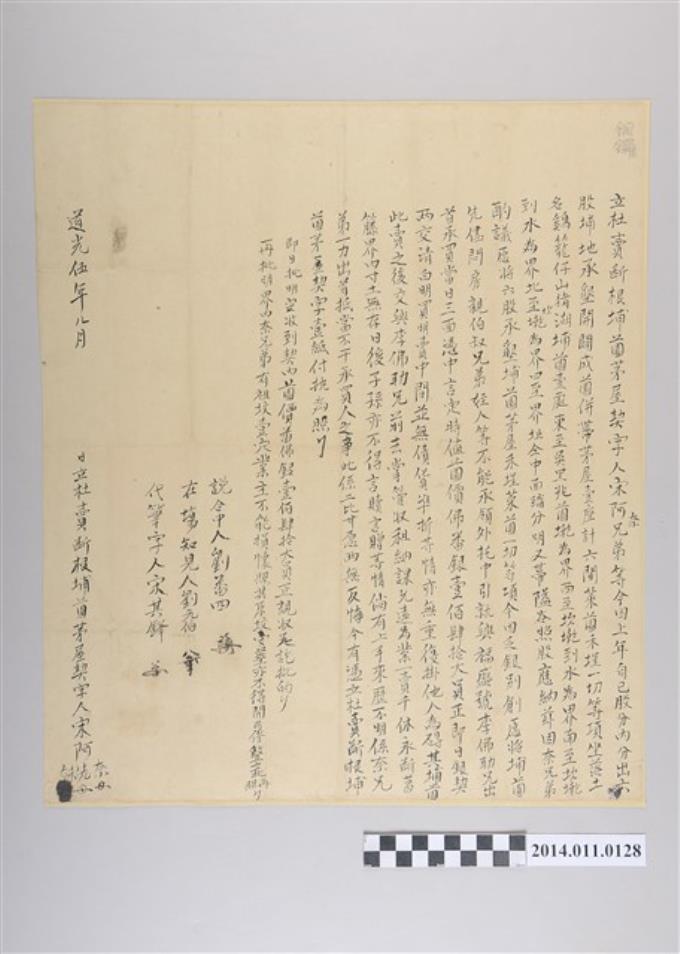 立杜賣斷根埔園茅屋契字人宋阿奈兄弟等今因上年自己股分內分出六
股埔地承墾開闢成園併帶茅屋壹座計六間菜園禾埕一切等項坐落土
名鷄籠仔山豬湖埔園壹處東至吳黑兆園墘為界西至坎墘到水為界南至坎墘
到水為界北至坎墘為界四至界址仝中面踏分明又帶隘谷照股應納茲因奈兄弟
酌議愿將六股承墾埔園茅屋禾埕菜園一切等項今因乏銀別創愿將埔園
先儘問房親伯叔兄弟姪人等不能承領外托中引就與福盛號李佛助兄出
首承買當日三面憑中言定時值園價佛番銀壹佰肆拾大員正即日銀契
兩交清白明買明賣中間並無債貨準折等情亦無重復掛他人為碍其埔園
此賣之後交與李佛助兄前去掌管收租納課允遠為業一賣千休永斷葛
籐界內寸土無存日後子孫亦不得言贖言贈等情倘有上手來歷不明係奈兄
弟一力出首抵當不干承買人之事此係二比甘愿兩無反悔今有憑立杜賣斷根埔
園茅屋契字壹紙付執為照
即日批明實收到契內園價番佛銀壹佰肆拾大員正親收足訖批的
再批明界內奈兄弟有祖坟壹穴業主不能損懷
說合中人劉番四
在場知見人劉元伯
代筆字人宋其鋒
道光伍年八月 日立杜賣斷根埔園茅屋契字人宋阿奈
2014.011.0128